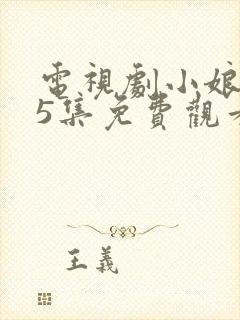 電視劇小娘
5集免費觀看
王義